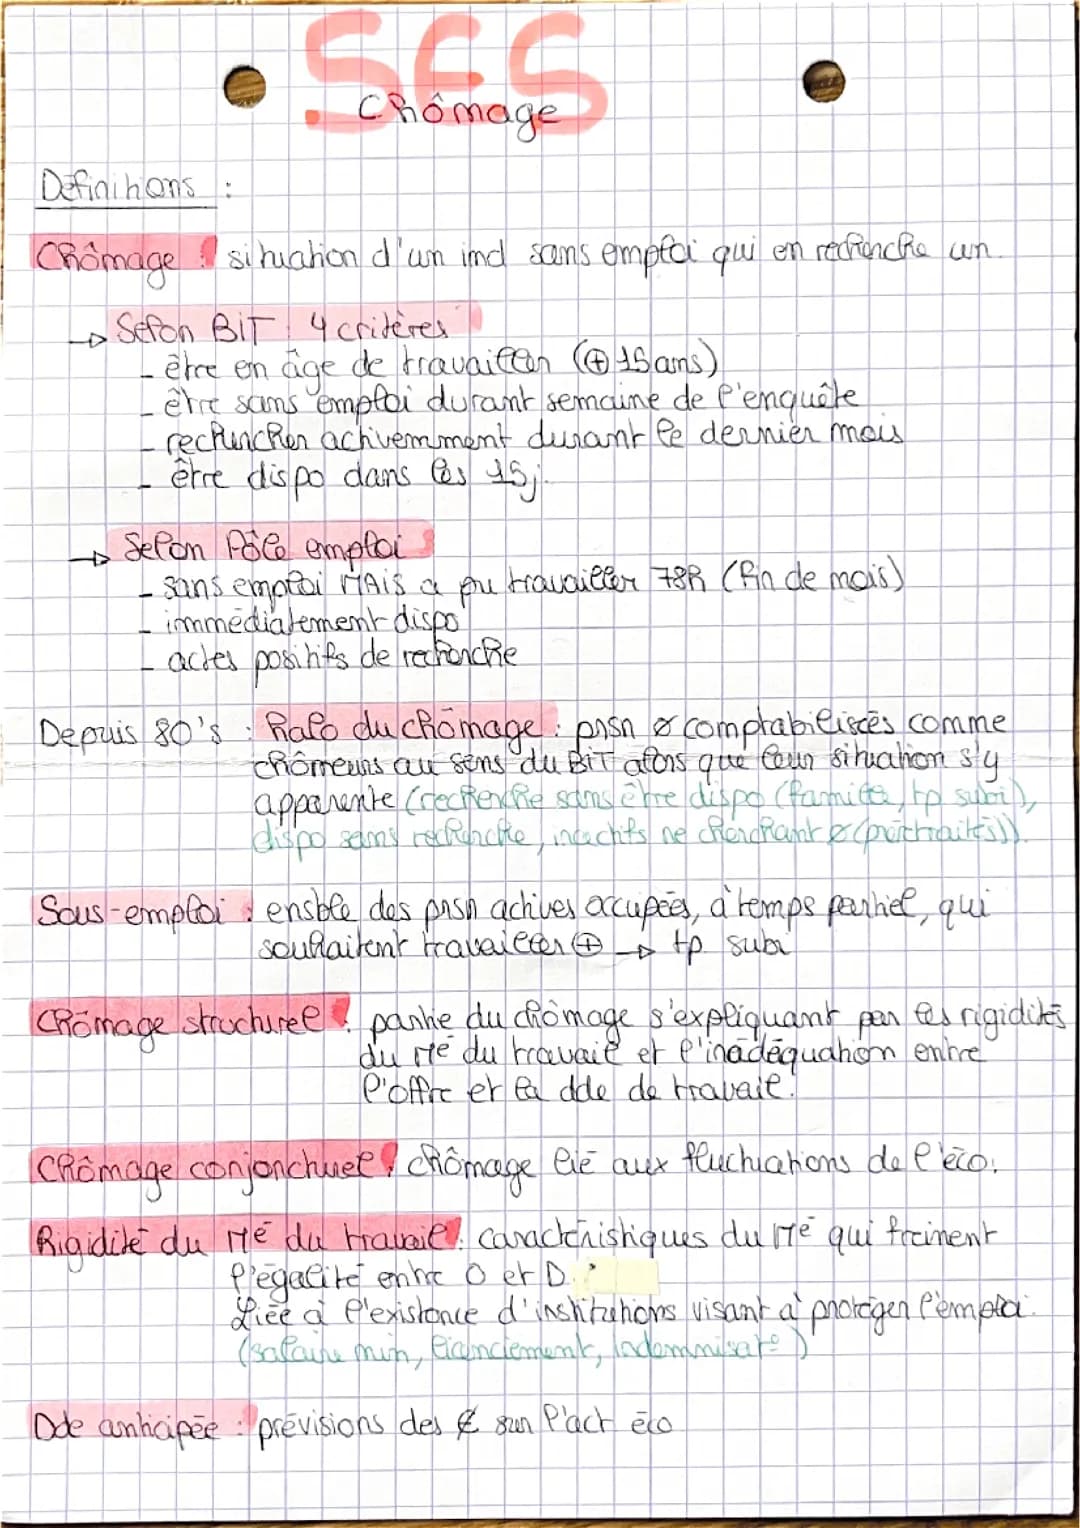 SES
Chômage
Définitions :
Chômage : situation d'un ind sans emploi qui en recherche un.
→ Selon BIT : 4 critères
- être en âge de travailler (⊕ 15 ans)
- être sans emploi durant semaine de l'enquête
- rechercher activemment durant le dernier mois
- être dispo dans les 15j.
→ Selon Pôle emploi :
- sans emploi MAIS a pu travailler 78h (fin de mois)
- immédiatement dispo
- actes positifs de recherche
Depuis 80's : Halo du chômage : prsn ø comptabilisées comme
chômeurs au sens du BIT alors que leur situation s'y
apparente (recherche sans être dispo (famille, tp subi),
dispo sans recherche, inactifs ne cherchant ø (préretraités)).
Sous-emploi : ensble des prsn actives occupées, à temps partiel, qui
souhaitent travailler ⊕ → tp subi
Chômage structurel : partie du chômage s'expliquant par les rigidités
du Mé du travail et l'inadéquation entre
l'offre et la dde de travail.
Chômage conjoncturel : chômage lié aux fluctuations de l'éco.
Rigidité du Mé du travail : caractéristiques du Mé qui freinent
l'égalité entre O et D.
Liée à l'existence d'institutions visant à protéger l'emploi.
(salaire min, licenciement, indemnisat°)
Dde anticipée : prévisions des € sur l'act éco